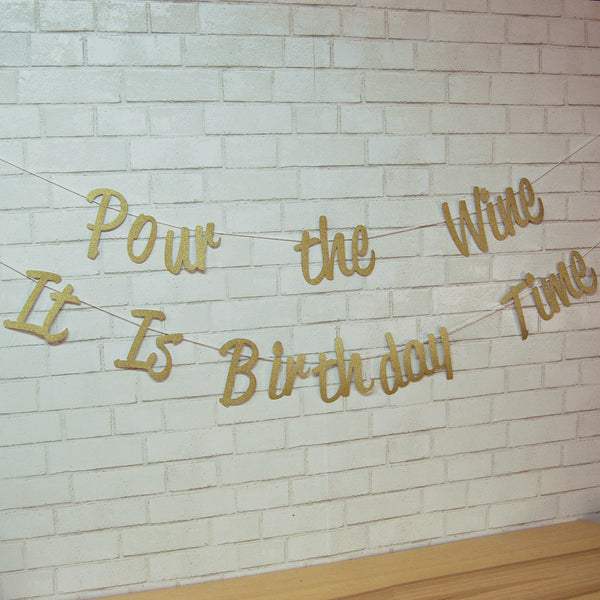 Pour the Wine
It Is Birthday Time